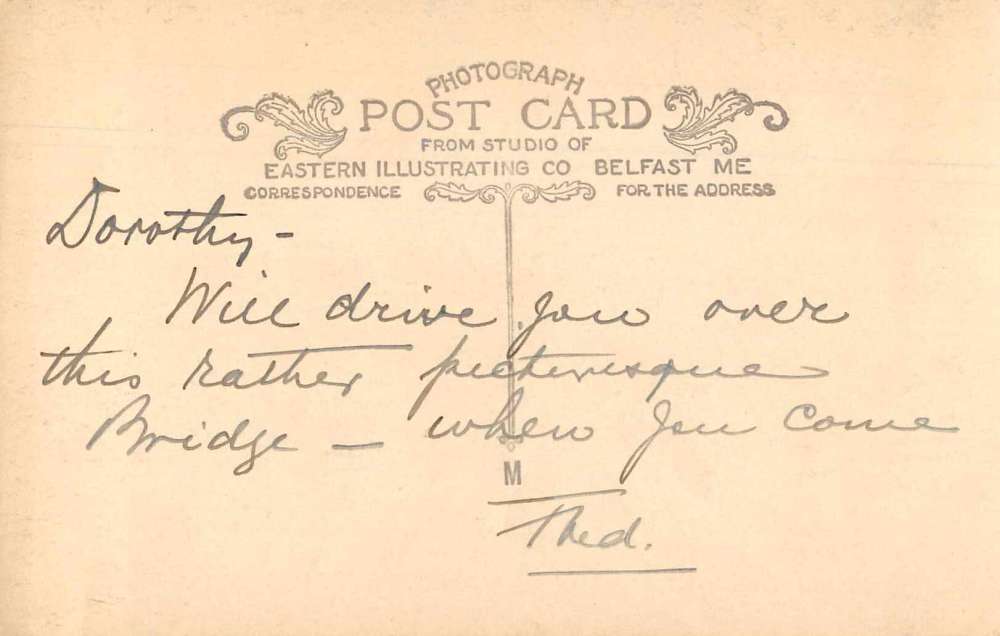 PHOTOGRAPH
POST CARD
FROM STUDIO OF
EASTERN ILLUSTRATING CO BELFAST ME
CORRESPONDENCE FOR THE ADDRESS
Dorothy -
Will drive you over
this rather picturesque
Bridge - when you come
M
Thed.